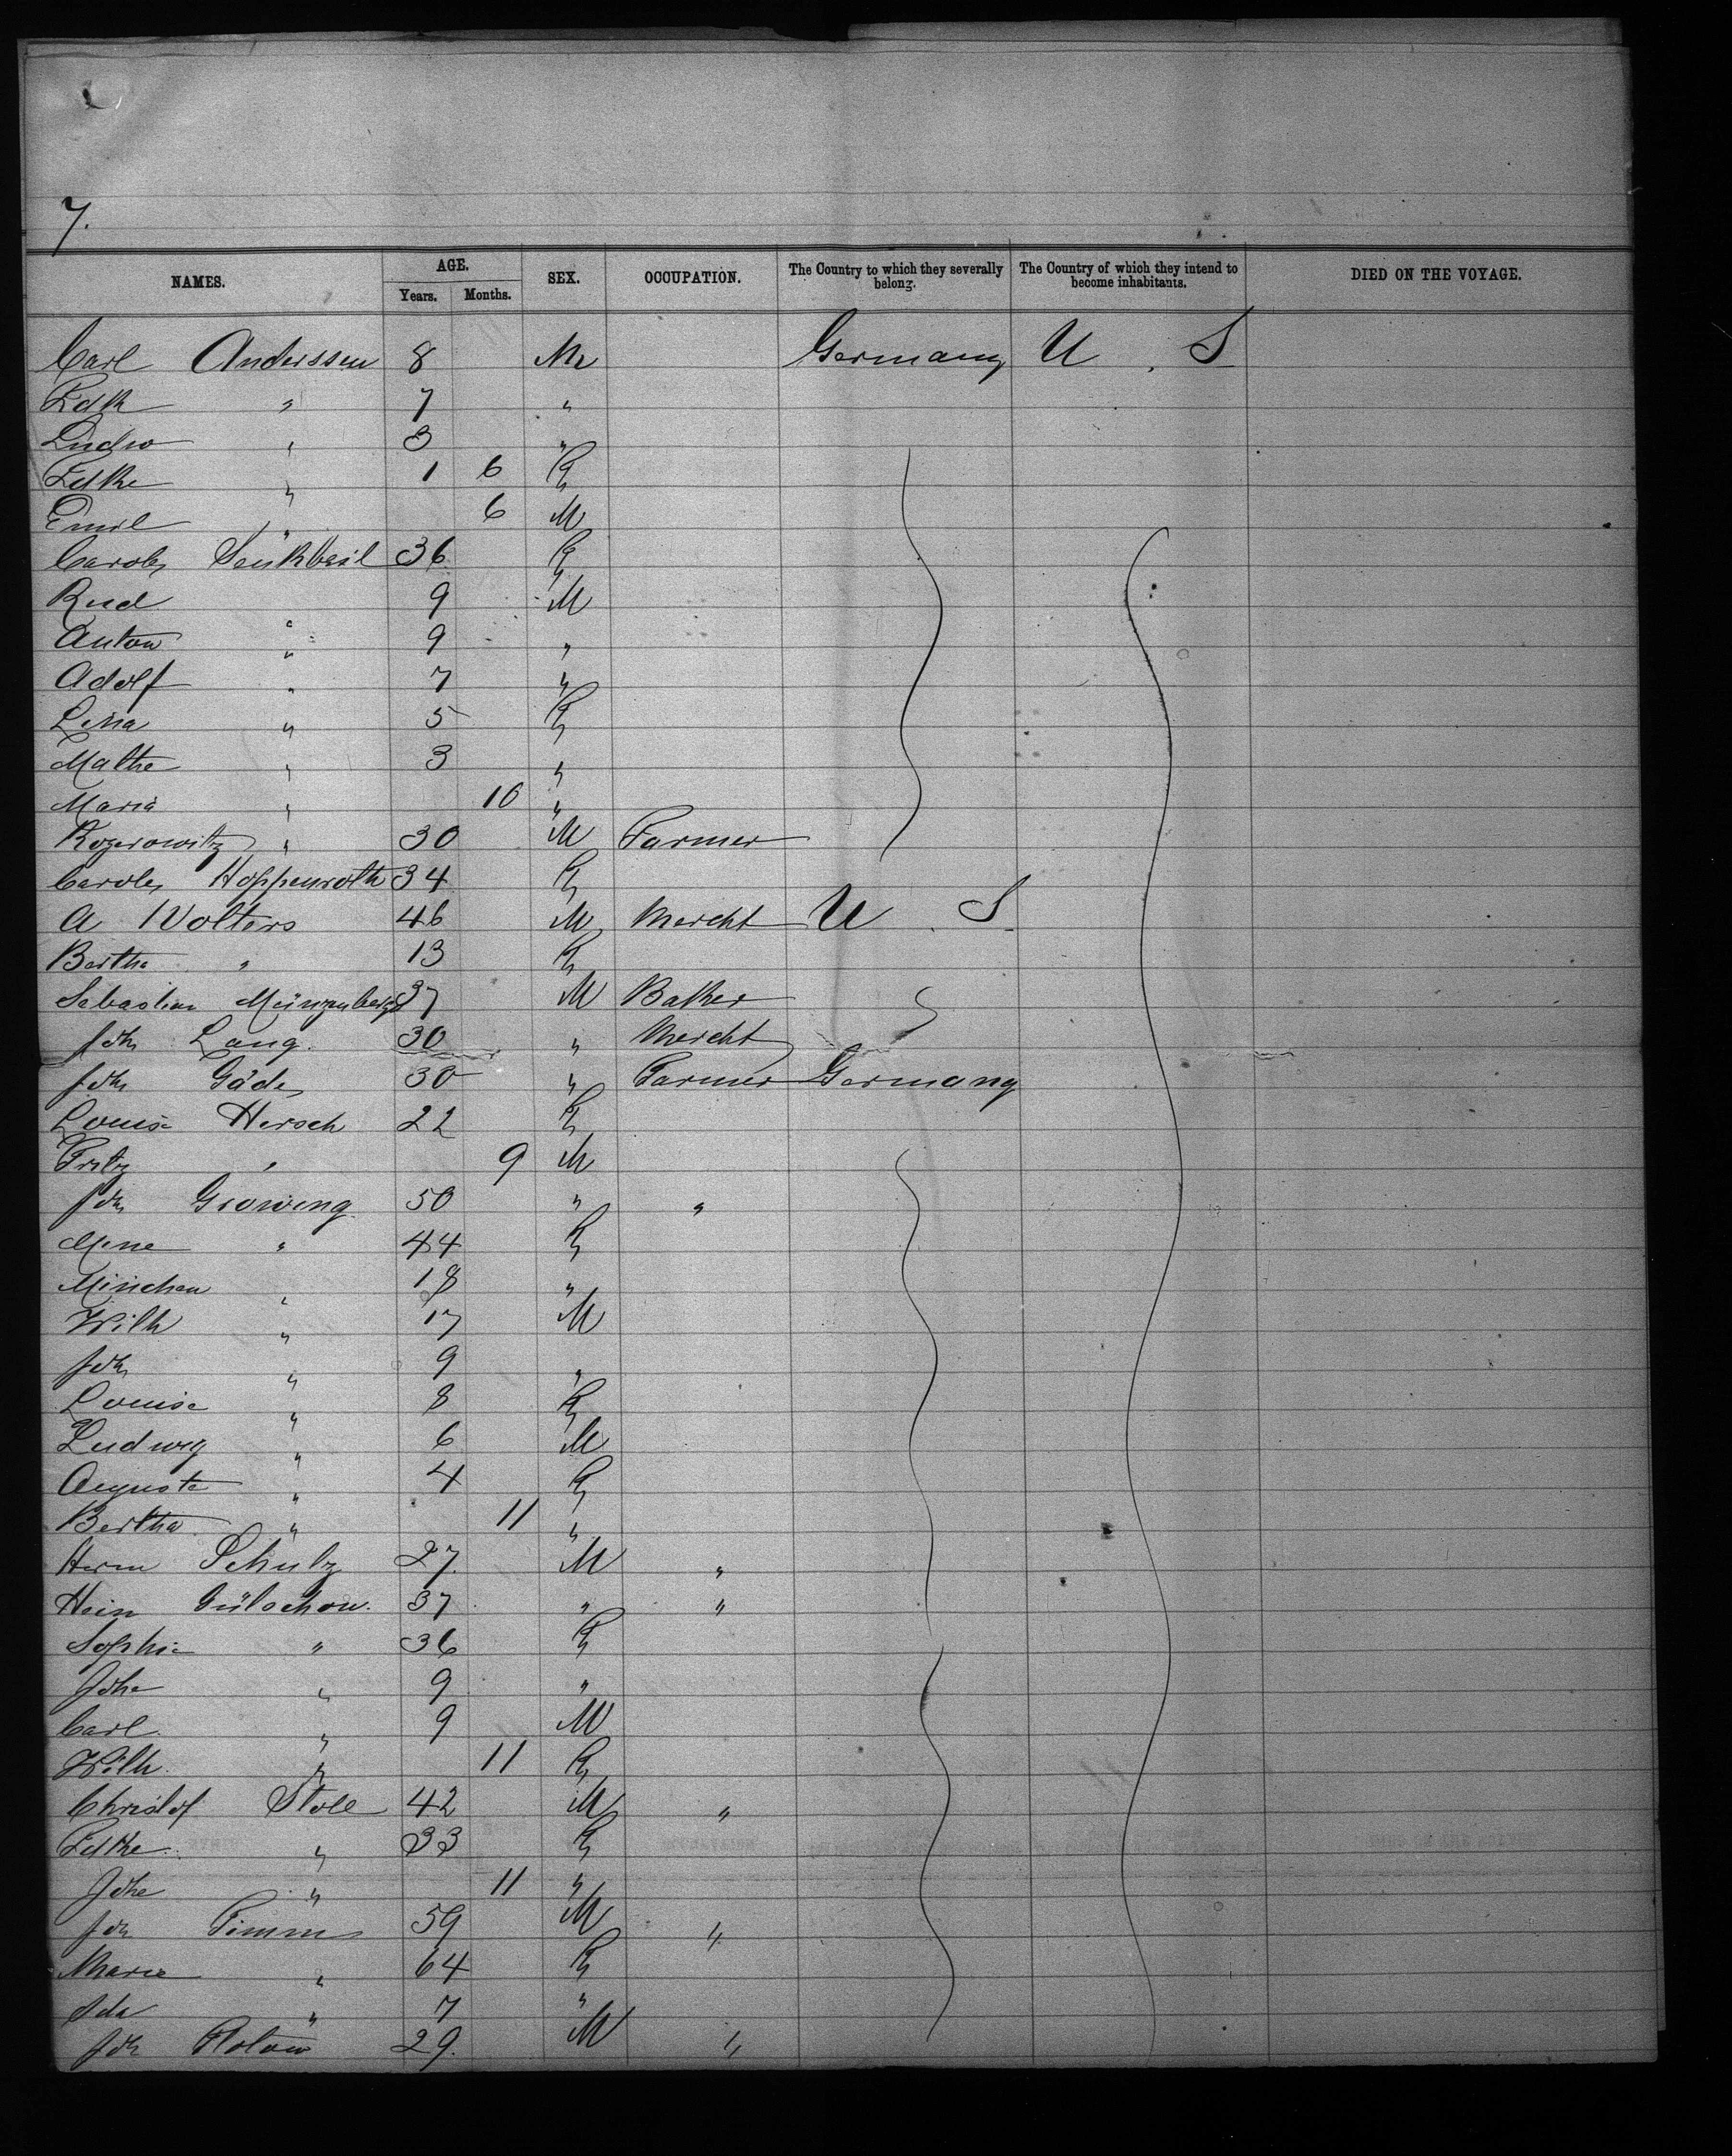 7.
NAMES. AGE. SEX. OCCUPATION. The Country to which they severally belong. The Country of which they intend to become inhabitants. DIED ON THE VOYAGE.
Years. Months.
Carl Anderssen 8 M Germany U. S
" 7 "
Ludw " 3 "
" 1 6 F
Emil " 6 M
36 F
Rud " 9 M
Anton " 9 "
Adolf " 7 "
Lina " 5 F
Mathe " 3 "
Maria " 10 "
Rogerowitz " 30 M Farmer
Hoppenroth 34 F
A Wolters 46 M Mercht U. S
Bertha " 13 F
Sebastian Münzenberger 37 M Baker "
Joh Lang. 30 " Mercht
Joh Gäde 30 " Farmer Germany
Louise Hersch 22 F
Fritz " 9 M
Joh Growing 50 " "
Mine " 44 F
Minchen " 18 "
Wilh " 17 M
Joh " 9 "
Louise " 8 F
Ludwig " 6 M
Auguste " 4 F
Bertha " 11 "
Herm Schulz 27. M "
Hein Gülschow. 37 " "
Sophie " 36 F
Johe " 9 "
Carl " 9 M
Wilh. " 11 F
Christof Stoll 42 M "
" 33 F
Johe " 11 "
Joh Timm 59 M "
Marie " 64 F
Ida " 7 "
Joh Flotow 29. M "